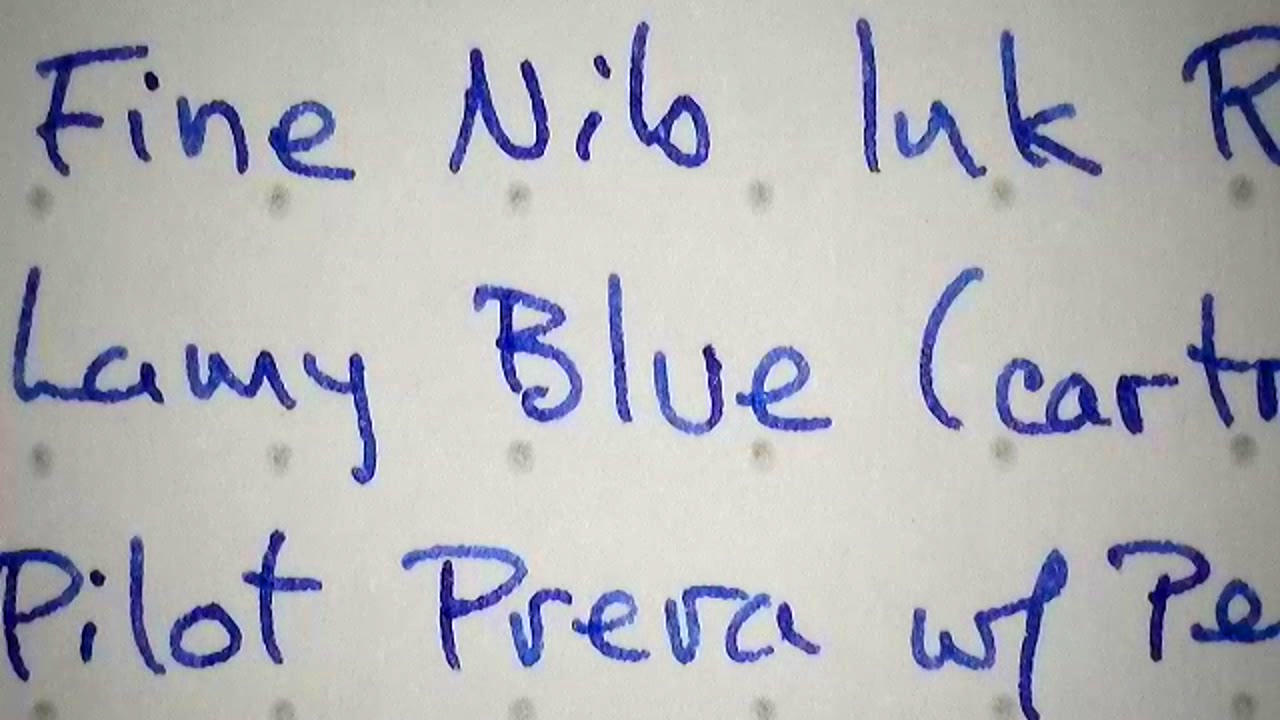 Fine Nib Ink R
Lamy Blue (cartr
Pilot Prera w/ Pe